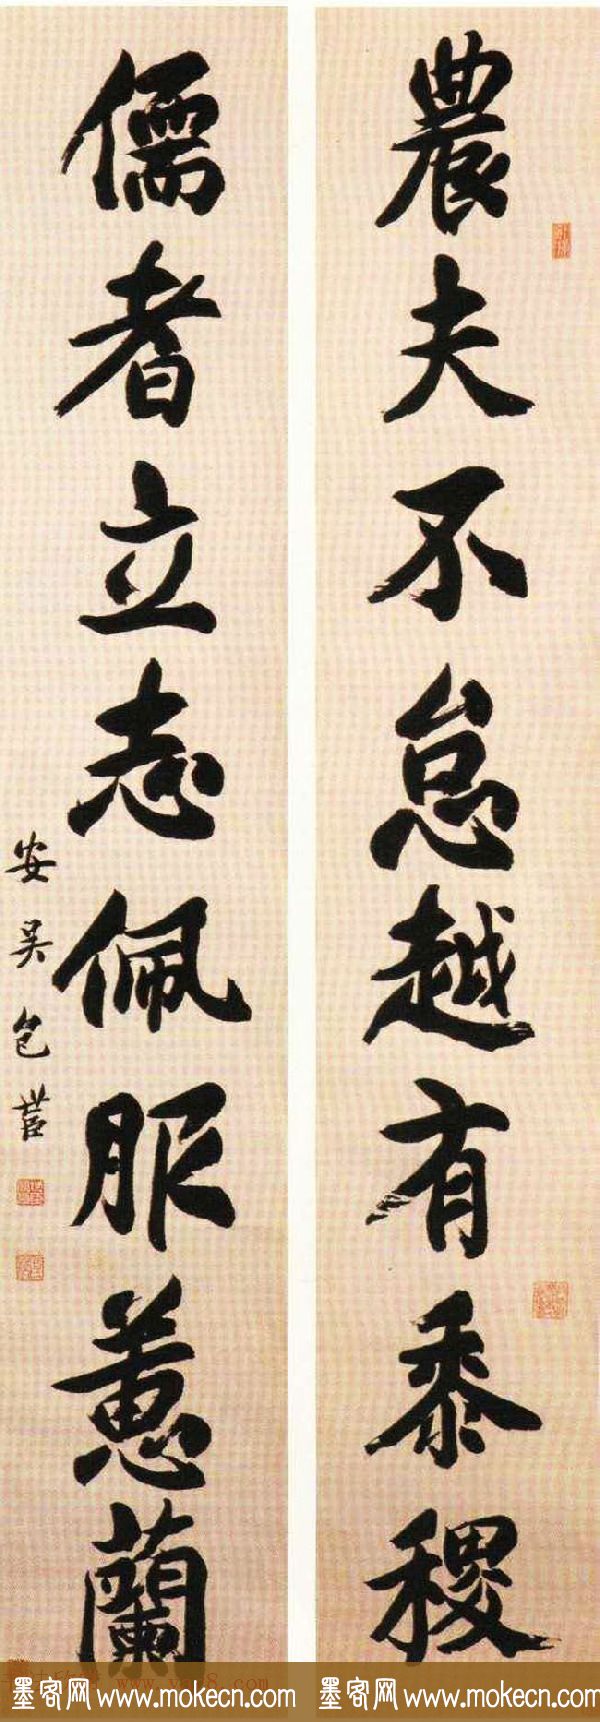 農夫不怠越有黍稷
儒者立志佩服蕙蘭
安吳包世臣
墨客网 www.mokecn.com 墨客网 www.mokecn.com